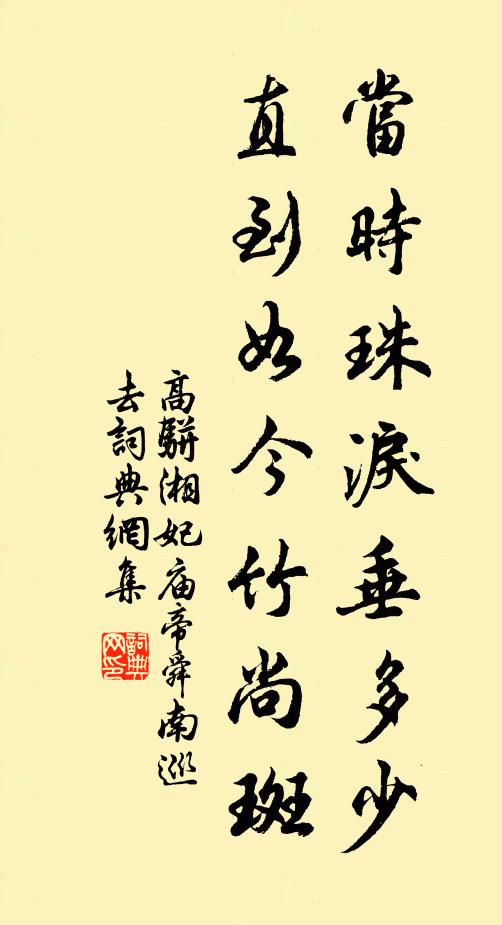 當時珠淚垂多少
直到如今竹尚斑
高駢湘妃庙帝舜南巡
去詞典網集
詞典网印